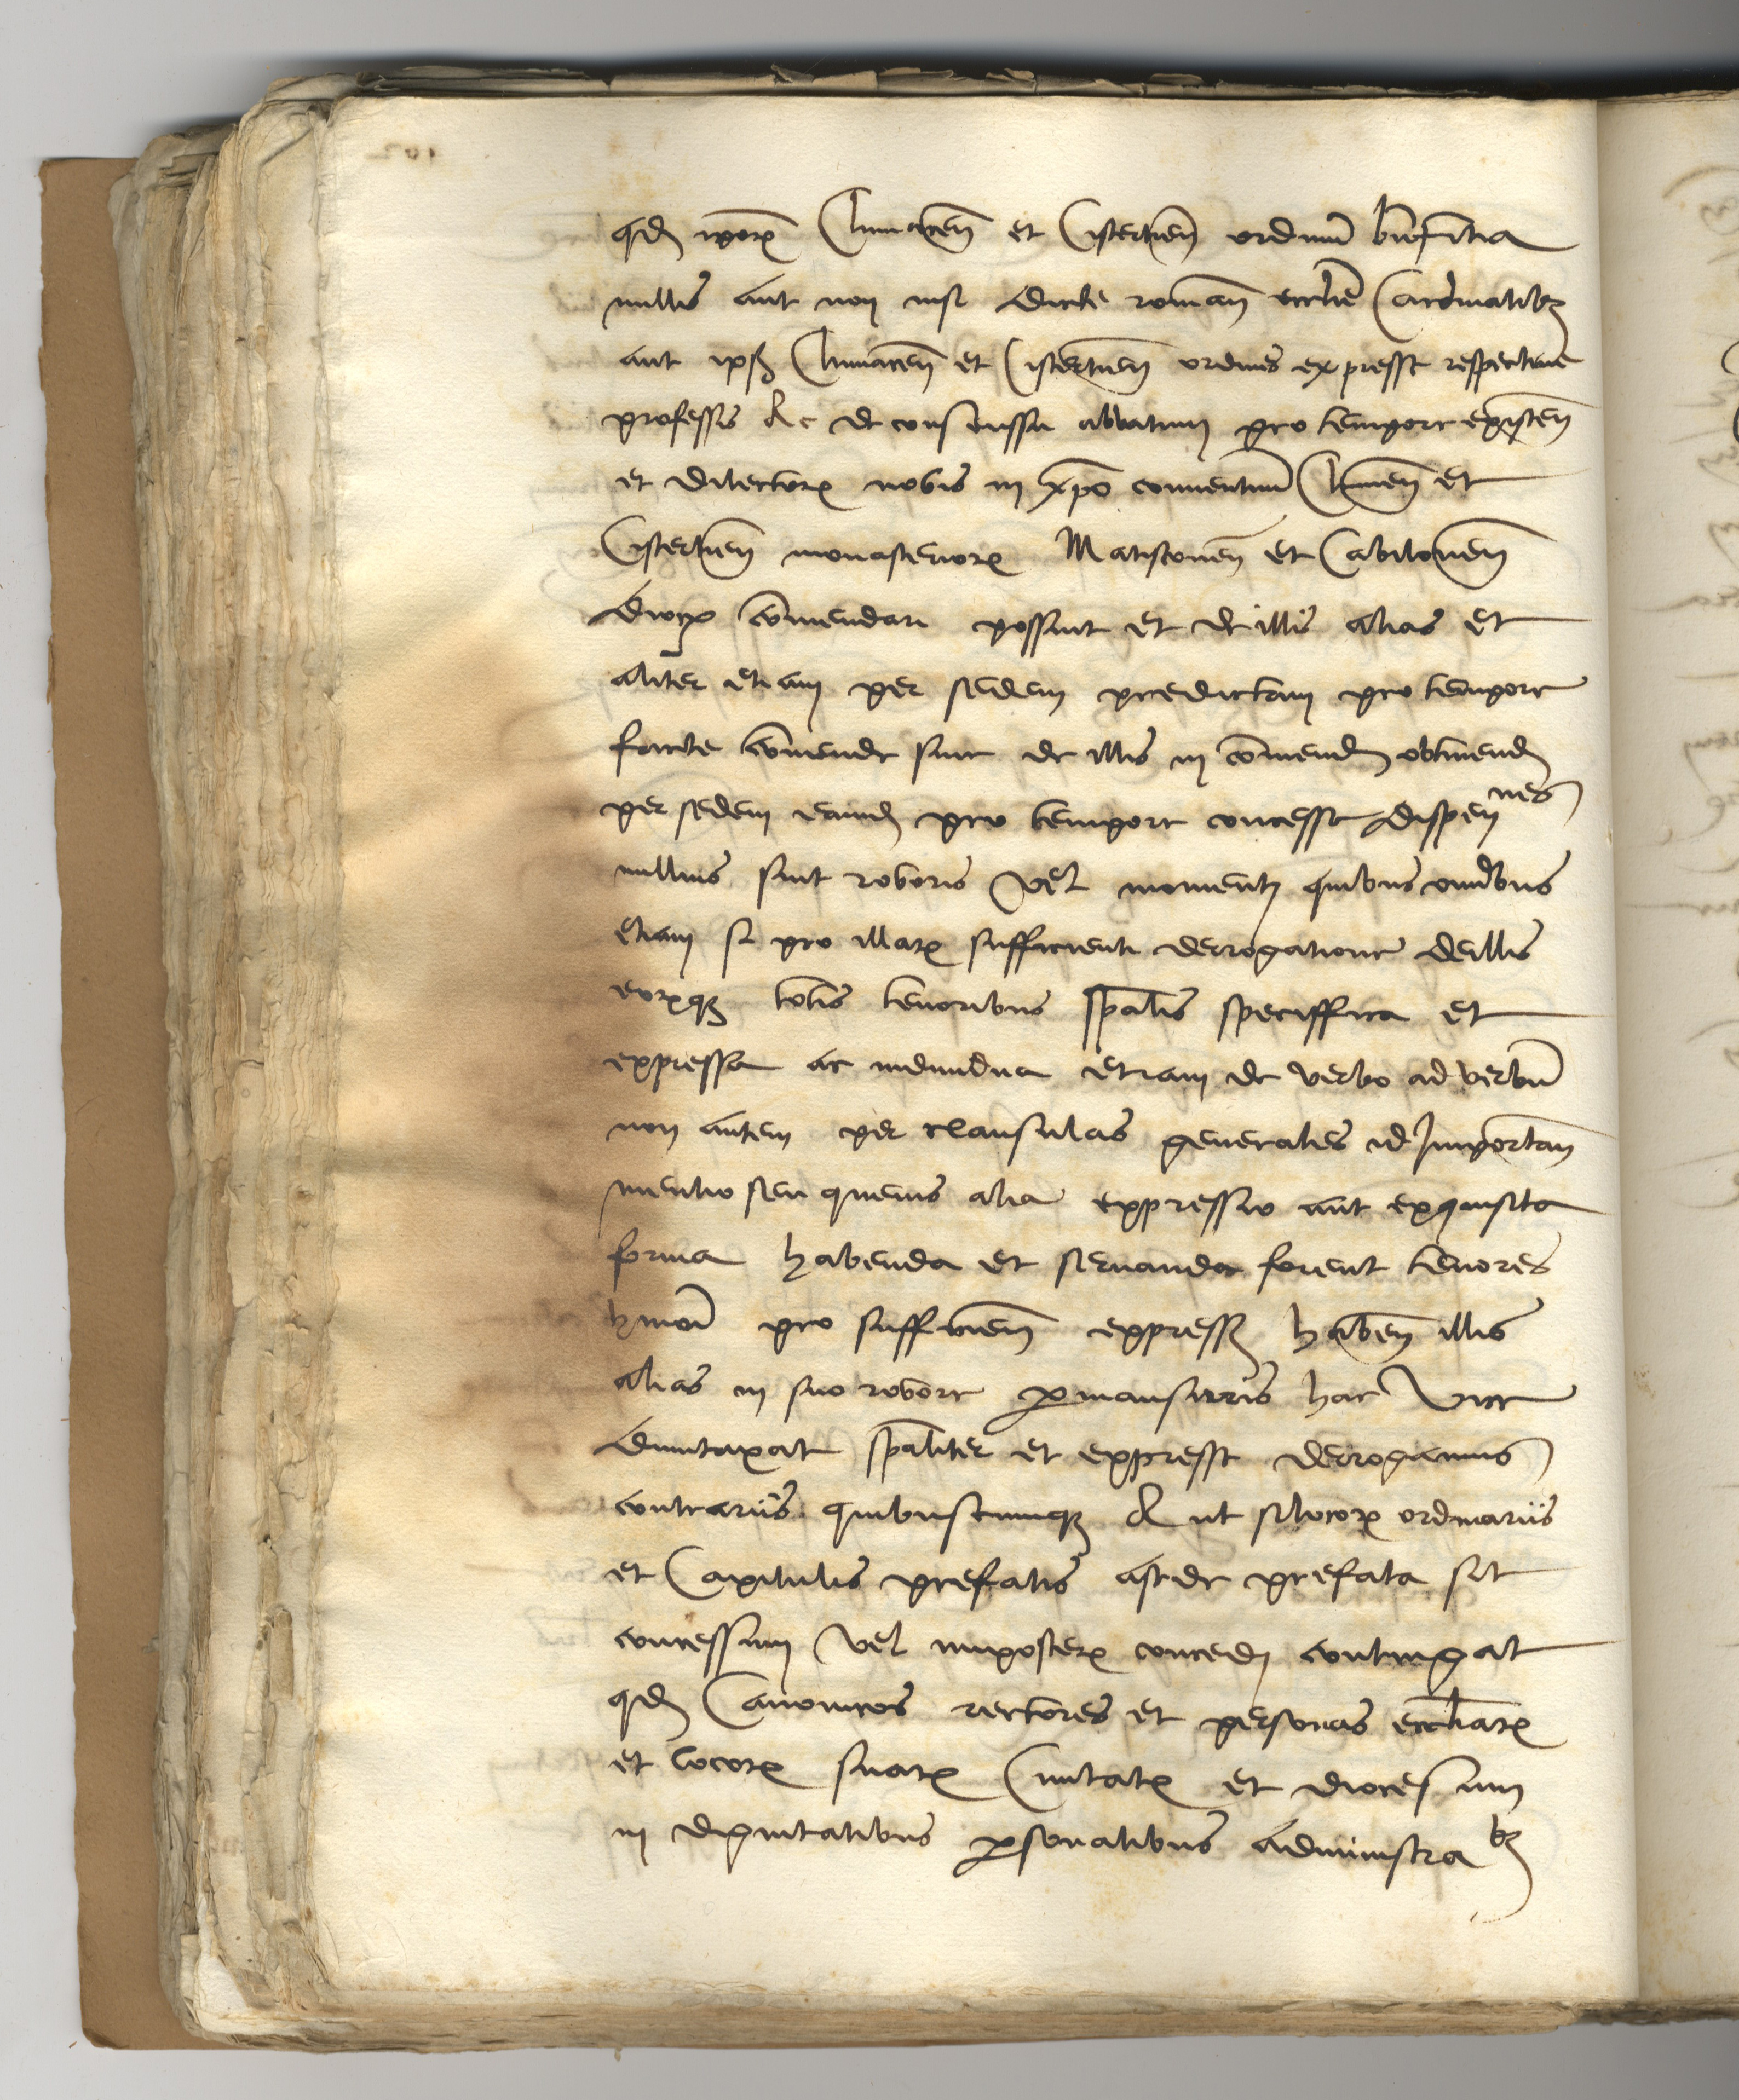 qd ipor Cluniacen et Cistertien ordinu bnficia
nullis aut non nisi dicte roman ecclie Cardinalibz
aut ipis Cluniacen et Cistertien ordines expresse respective
professis &c de consenssu abbatum pro tempore existen
et dilectorz nobis in xpo conventuu Clunien et
Cistertien monasteriorz Matisconen et Cabilonen
dioc comendari possint et de illis alias et
aliter etiam per sedem predictam pro tempore
facte comende sive de illis in comendam obtinend
per sedem eamd pro tempore concesse dispen nes
nullius sint roboris vel momenti quibus omibus
etiam si pro illarz sufficienti derrogatione de illis
eorzqz totis tenoribus spalis speciffica et
expressa ac individua etiam de verbo ad verbu
non autem per clausulas generales id Importan
mentio seu quevis alia expressio aut exquisita
forma habenda et servanda forent tenores
hmoi pro sufficien express haben illis
alias in suo robore permansuris hac vice
dumtaxat spaliter et expresse derrogamus
contrariis quibuscumqz & ut si locorz ordinariis
et Capitulis prefatis a sede prefata sit
concessum vel imposterz concedi contingat
qd Canonicos rectores et personas eccliarz
et locorz suarz Civitatz et diocesum
in dignitatibus personatibus administra bz